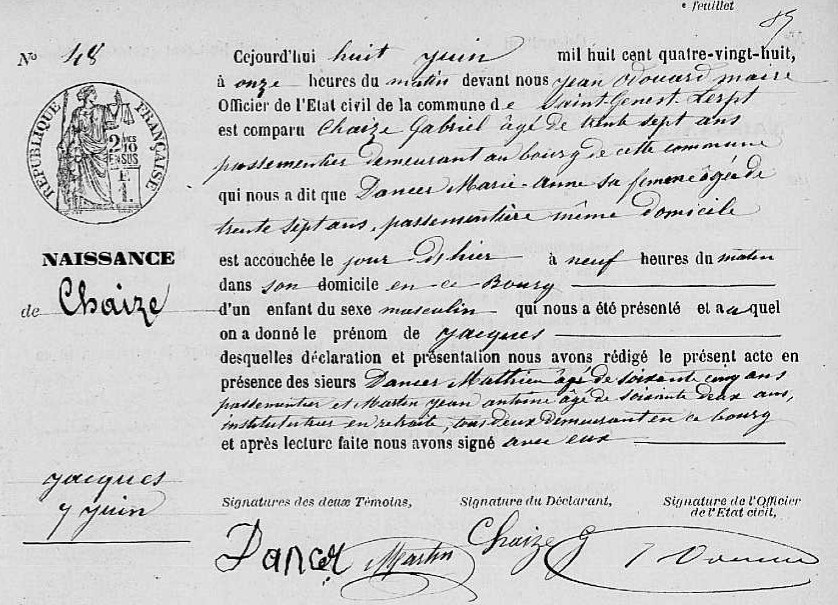 feuillet
85
No 48
Cejourd'hui huit juin mil huit cent quatre-vingt-huit,
à onze heures du matin devant nous Jean Odouard maire
Officier de l'Etat civil de la commune de Saint-Genest-Lerpt
est comparu Chaize Gabriel âgé de trente sept ans
passementier demeurant au bourg de cette commune
qui nous a dit que Dancer Marie-Anne sa femme âgée de
trente sept ans, passementière même domicile
est accouchée le jour d'hier à neuf heures du matin
dans son domicile en ce Bourg
d'un enfant du sexe masculin qui nous a été présenté et auquel
on a donné le prénom de Jacques
desquelles déclaration et présentation nous avons rédigé le présent acte en
présence des sieurs Dancer Mathieu âgé de soixante cinq ans
passementier et Martin Jean Antoine âgé de soixante deux ans,
instituteur en retraite, tous deux demeurant en ce bourg
et après lecture faite nous avons signé avec eux
RÉPUBLIQUE FRANÇAISE
2 10
EN SUS
NAISSANCE
de Chaize
Jacques
7 juin
Signatures des deux Témoins, Signature du Déclarant, Signature de l'Officier
de l'Etat civil,
Dancer Martin Chaize G